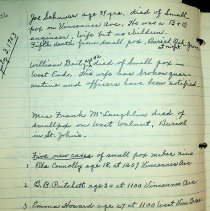 July 3, 1903
Joe Schuner age 39 yrs. died of Small
pox on Vincennes Ave. He was a B & O
engineer, Wife but no children.
Fifth death from small pox. Buried
at night
William Dart age 38 died of Small pox in
West Ends. His wife has broken quar-
antine and officers have been notified.
Mrs Frank McLaughlin died of
smallpox on West Walnut, Buried
in St. Johns.
Five new cases of small pox makes nine
1. Ella Connolly age 18, at 1207 Vincennes Ave
2. B.B. Pritchett age 30 at 1100 Vincennes Ave
3. Emma Howard age 27 at 1100 West Van Trees